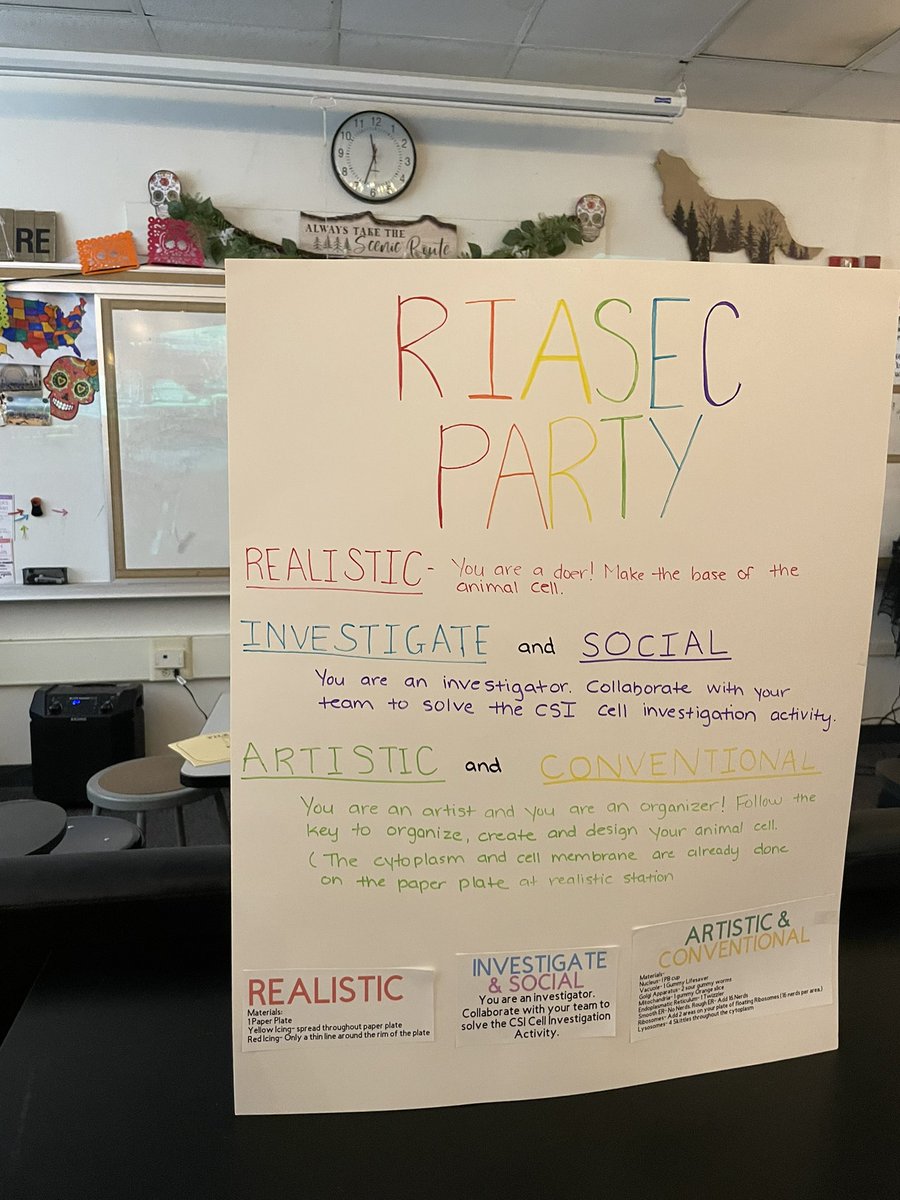 11 12 1
10 2
9 3
8 4
7 6 5
RE
ALWAYS TAKE THE
Scenic Route
RIASEC
PARTY
REALISTIC - You are a doer! Make the base of the
animal cell.
INVESTIGATE and SOCIAL
You are an investigator. Collaborate with your
team to solve the CSI cell investigation activity.
ARTISTIC and CONVENTIONAL
You are an artist and you are an organizer! Follow the
key to organize, create and design your animal cell.
(The cytoplasm and cell membrane are already done
on the paper plate at realistic station
REALISTIC
Materials:
1 Paper Plate
Yellow Icing- spread throughout paper plate
Red Icing- Only a thin line around the rim of the plate
INVESTIGATE
& SOCIAL
You are an investigator.
Collaborate with your team to
solve the CSI Cell Investigation
Activity.
ARTISTIC &
CONVENTIONAL
Materials-
Nucleus- 1 PB cup
Vacuole- 1 Gummy Lifesaver
Golgi Apparatus- 2 sour gummy worms
Mitochondria- 1 gummy Orange slice
Endoplasmatic Reticulum- 1 Twizzler
Smooth ER- No Nerds, Rough ER- Add 16 Nerds
Ribosomes- Add 2 areas on your plate of floating Ribosomes (16 nerds per area.)
Lysosomes- 4 Skittles throughout the cytoplasm